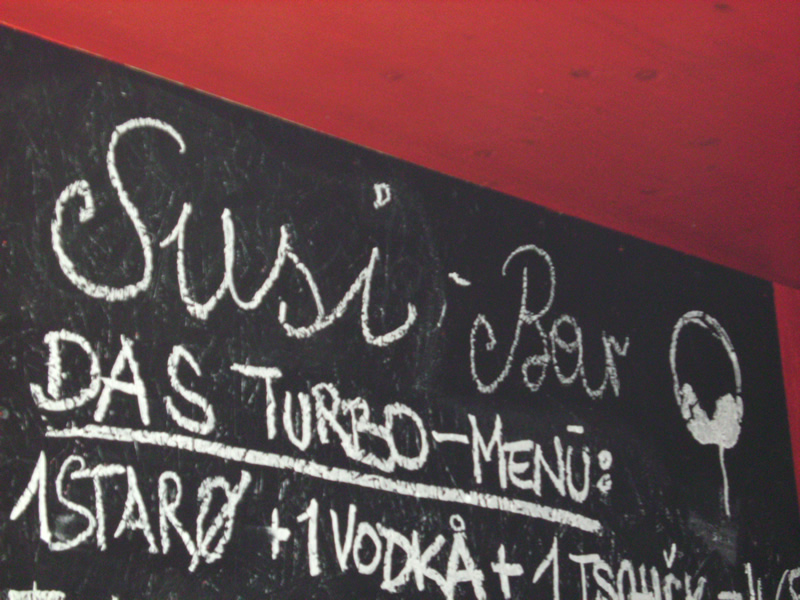 Susi-Bar
DAS TURBO-MENÜ:
1 STARØ + 1 VODKÅ + 1 TSCHIČK =